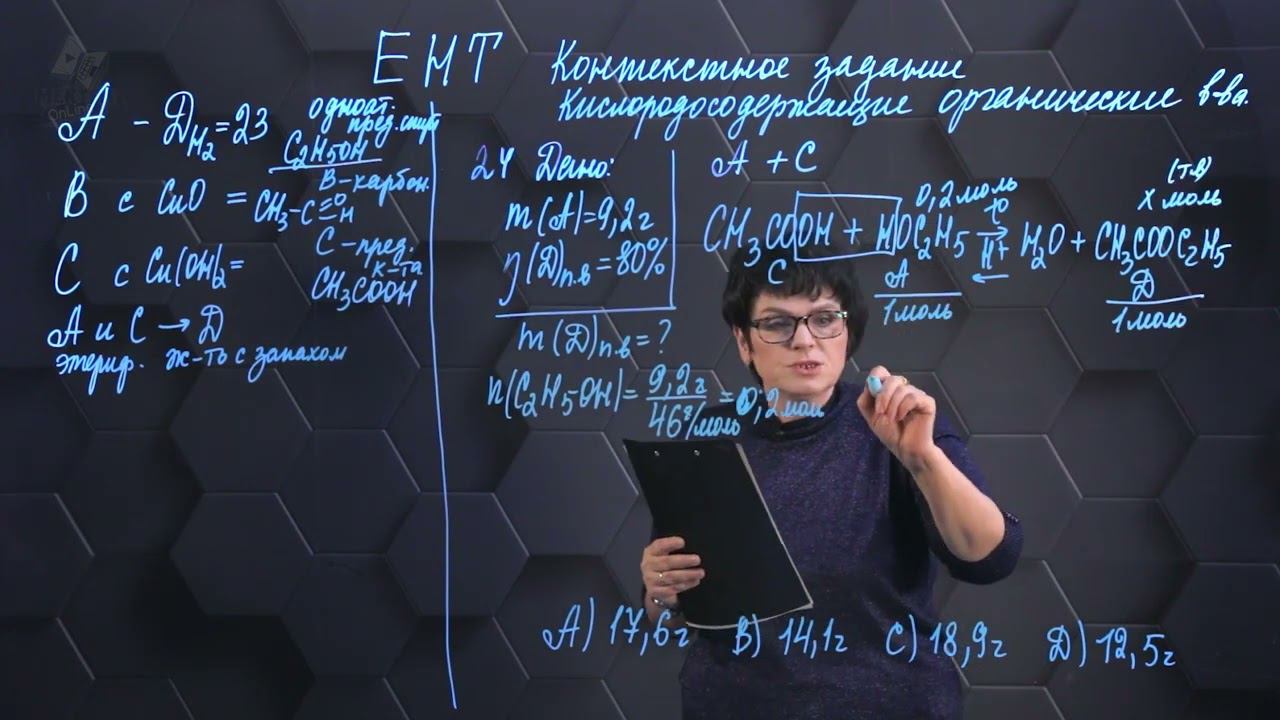 ЕНТ Контекстное задание
Кислородосодержащие органические в-ва.
А - D_H2 = 23
одноат.
пред. спирт
C2H5OH
B с CuO =
В-карбон.
CH3-C=O H
C с Cu(OH)2 =
С-пред.
к-та
CH3COOH
А и С → Д
этериф. ж-ть с запахом
24 Дано:
m(A)=9,2г
η(Д)п.в=80%
m(Д)п.в=?
n(C2H5OH)= 9,2г / 46г/моль = 0,2моль
А + С
0,2 моль
(т.в)
х моль
CH3COOH + HOC2H5 ⇄ t° H+ H2O + CH3COOC2H5
С
А
Д
1моль
1моль
А) 17,6г В) 14,1г С) 18,9г Д) 12,5г